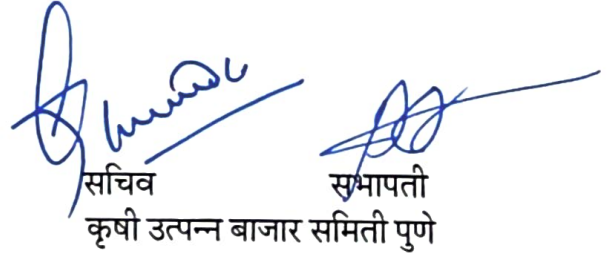 सचिव सभापती
कृषी उत्पन्न बाजार समिती पुणे